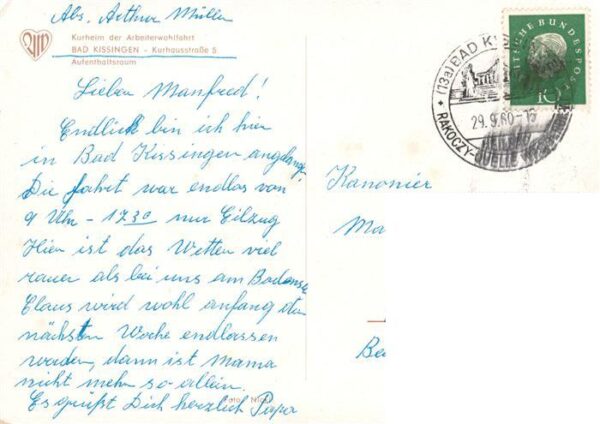 Abs. Arthur Müller
Kurheim der Arbeiterwohlfahrt
BAD KISSINGEN - Kurhausstraße 5
Aufenthaltsraum
Lieber Manfred!
Endlich bin ich hier
in Bad Kissingen angelangt
Die Fahrt war endlos von
9 Uhr - 1730 nur Eilzug
Hier ist das Wetter viel
rauer als bei uns am Bodensee
Claus wird wohl anfang der
nächsten Woche endlassen
werden, dann ist Mama
nicht mehr so allein.
Es grüßt Dich herzlich Papa
(13a) BAD
29.9.60-16
RAKOCZY-QUELLE
DEUTSCHE BUNDESPOST
10
Kanonier
Ma
Be